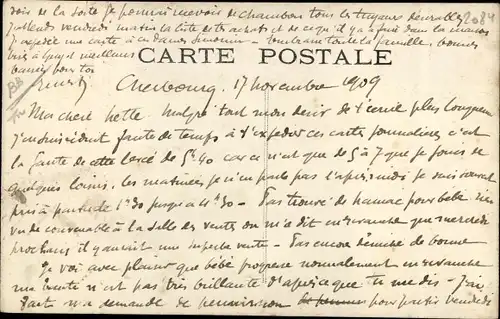 sorte je pourrai recevoir de chambon tous les tuyaux désirables 2084
vendredi matin la liste des achats et de ce qu'il y a à faire dans la maison
ma carte à ces dames toute la famille, bonnes
meilleurs
CARTE POSTALE
baisers pour toi
Cherbourg, 17 novembre 1909
Ma chère Malgré tout mon désir de t'écrire plus longuement
faute de temps à t'expédier ces cartes journalières c'est
la faute de cette levée de 5h40 car ce n'est que de 5 à 7 que je jouis de
quelques loisirs, les matinées je n'en parle pas l'après midi je suis souvent
pris à partir de 1h30 jusqu'à 4h30 - Pas trouvé de hamac pour bébé rien
vu de convenable à la salle des ventes on m'a dit en revanche que mercredi
prochain il y aurait une superbe vente - Pas encore déniché de bonne
Je vois avec plaisir que bébé progresse normalement en revanche
ma santé n'est pas très brillante d'après ce que tu me dis - J'ai
demandé permission pour partir vendredi